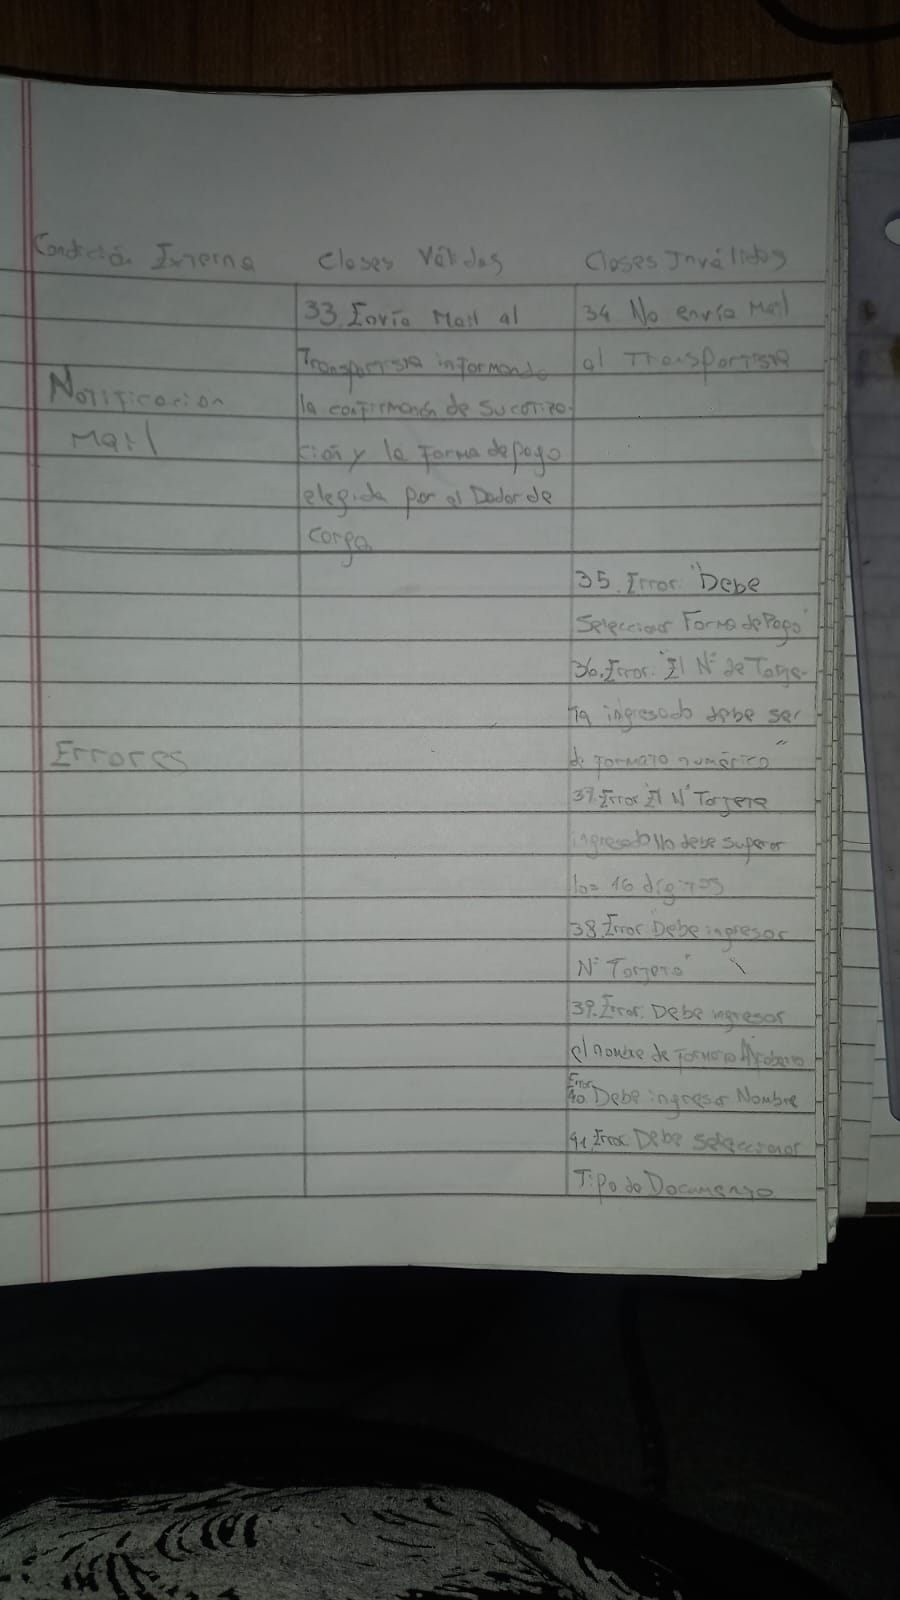 Condición Externa Clases Válidas Clases Inválidas
33. Envía Mail al
Transportista informando
la confirmación de su cotiza-
ción y la forma de pago
elegida por el Dador de
carga
34 No envía Mail
al Transportista
Notificacion
Mail
Errores
35. Error: "Debe
Seleccionar Forma de Pago"
36. Error: "El N° de Tarje-
ta ingresado debe ser
de formato numérico"
37. Error El N° Tarjeta
ingresado No debe superar
los 16 dígitos
38. Error "Debe ingresar
N° Tarjeta"
39. Error: Debe ingresar
el nombre de formato
Error
40 Debe ingresar Nombre
41. Error Debe seleccionar
Tipo de Documento